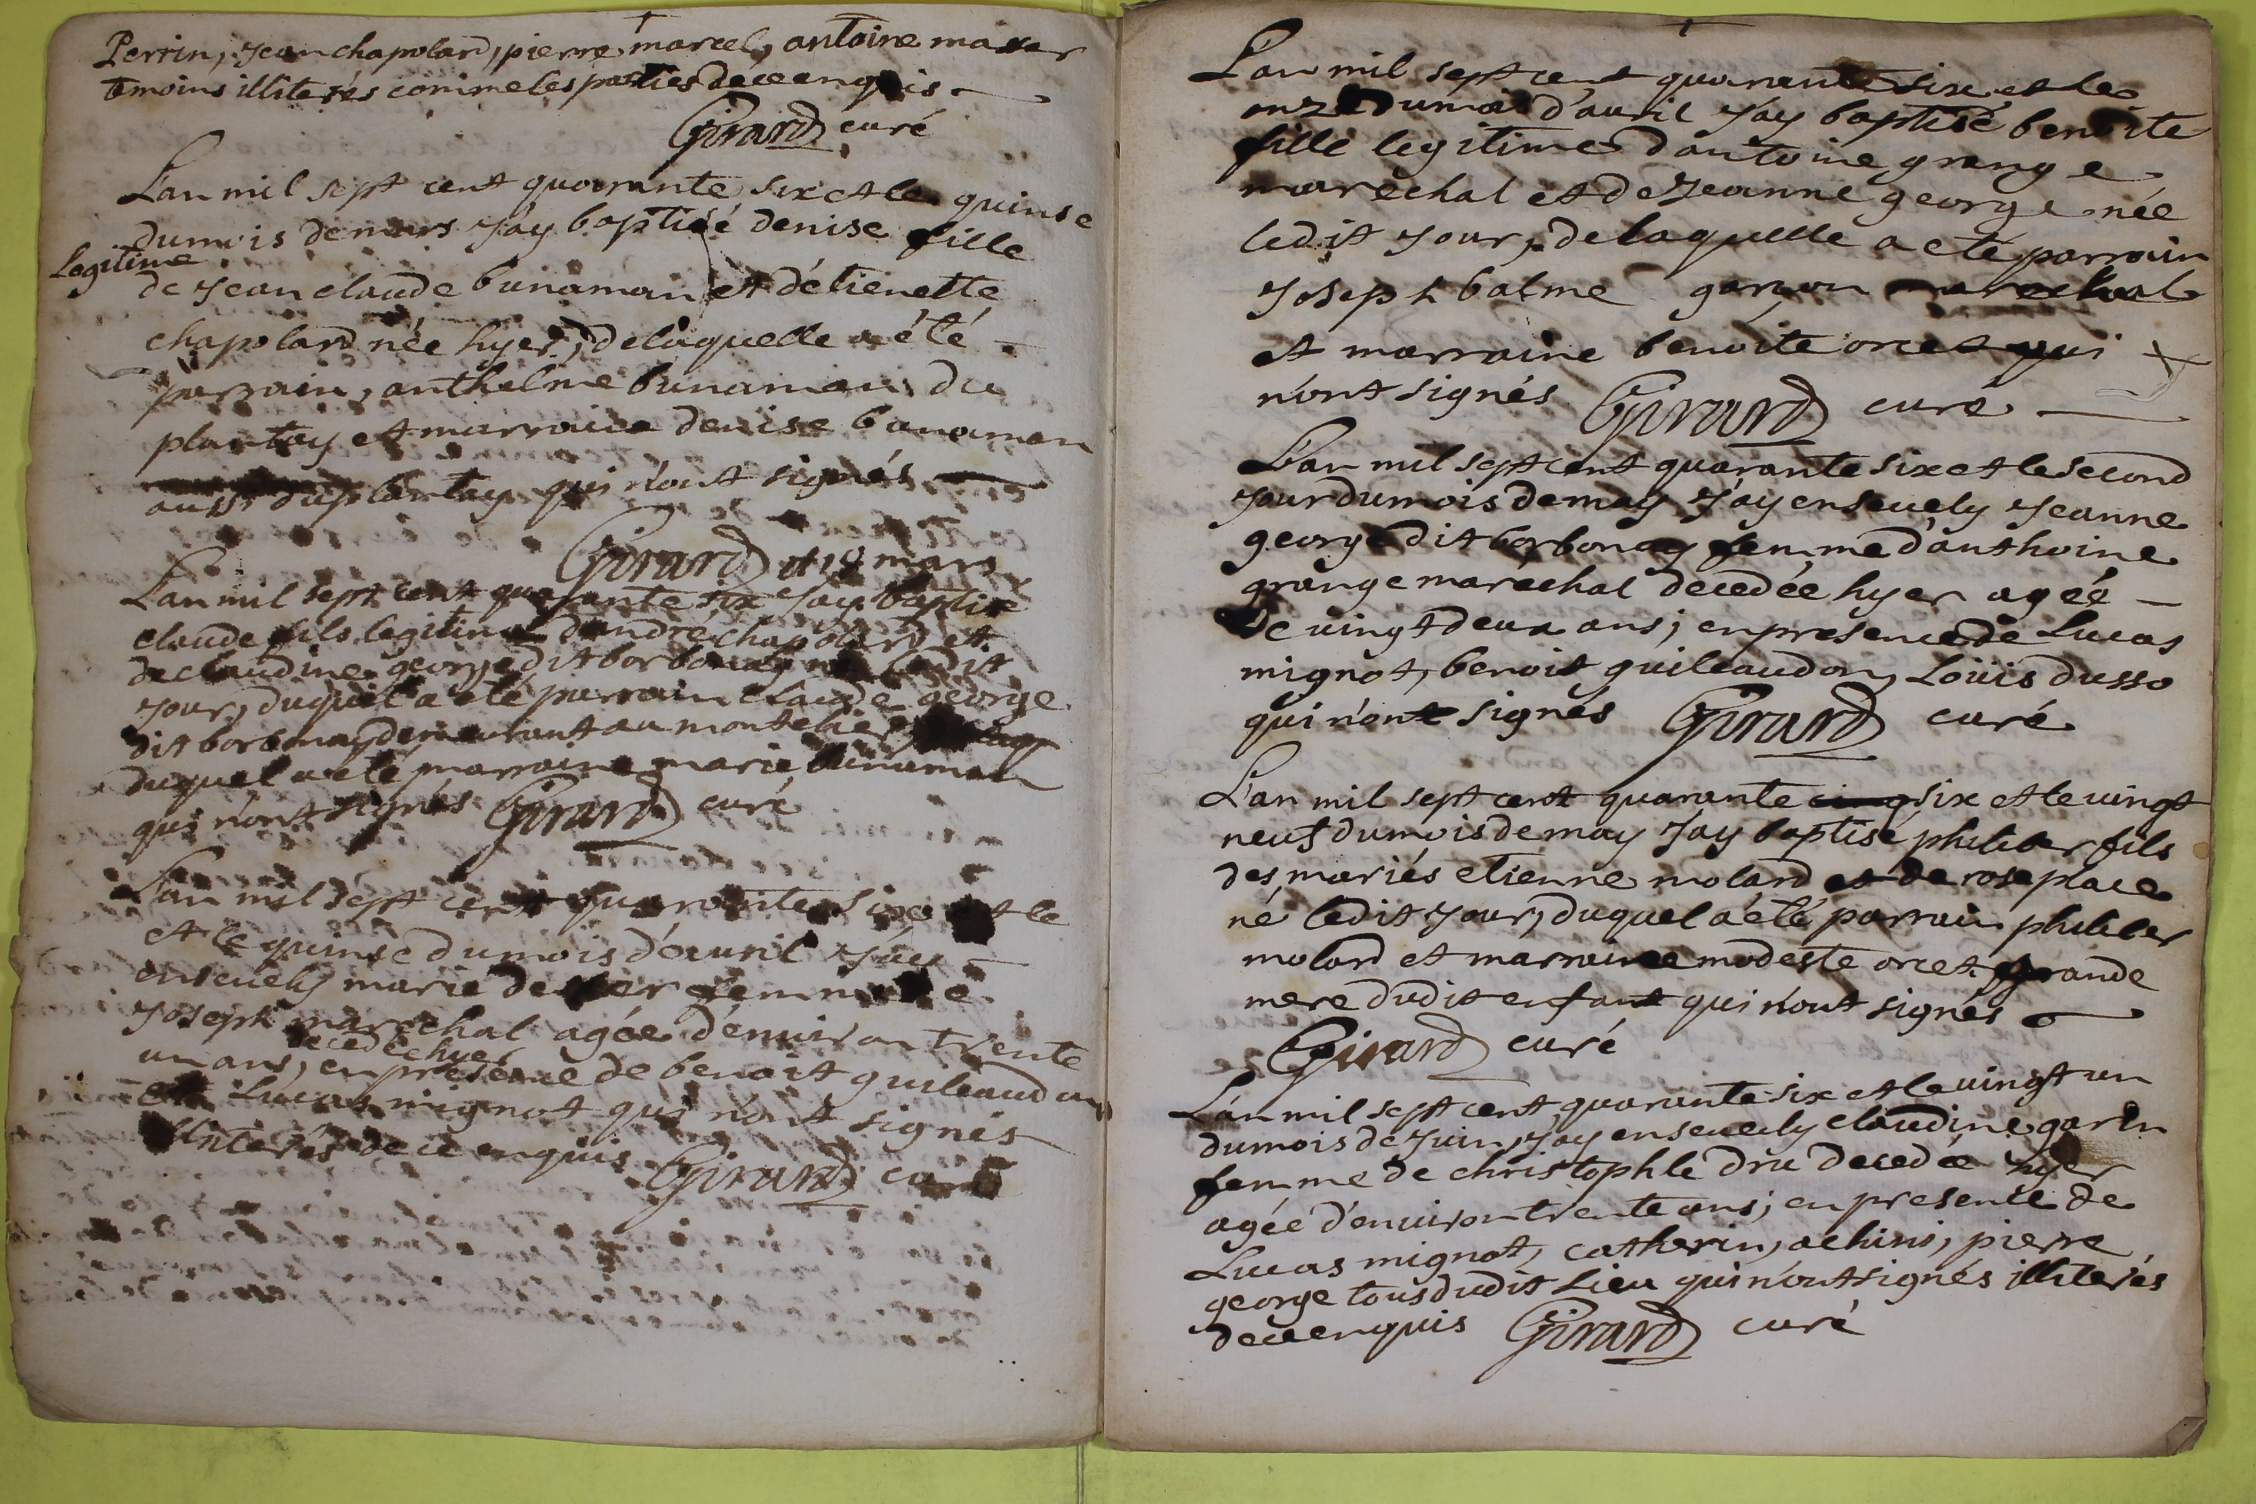 Perrin, Jean chapolard, pierre marcel, antoine
temoins illiterés comme les parties de ce enquis
Girard curé
L'an mil sept cent quarante six et le quinse
du mois de mars J'ay baptisé denise fille
legitime
de Jean claude bunaman et d'étienette
chapolard née hyer, de laquelle a été
parrain, anthelme bunaman du
plantay et marraine denise bunaman
aussi du plantay qui n'ont signés
Girard et 18 mars
L'an mil sept cent quarante six J'ay baptisé
claude fils legitime d'andré chapolard et
de claudine george dit borbonay né ledit
Jour, duquel a eté parrain claude george
dit borbonay demeurant au montelier
duquel a eté marraine marie bunaman
qui n'ont signés Girard curé
L'an mil sept cent quarante six et le
et le quinse du mois d'avril J'ay
ensevely marie femme de
Joseph marechal agée d'environ trente
decedée hyer
un ans, en presence de benoit guileaudon
et Lucas mignot qui n'ont signés
illiterés de ce enquis Girard curé
L'an mil sept cent quarante six et le
onze du mois d'avril J'ay baptisé benoite
fille legitime d'antoine grange
marechal et de Jeanne george née
ledit Jour, de laquelle a eté parrain
Joseph balme garçon marechal
et marraine benoite orcet qui
n'ont signés Girard curé
L'an mil sept cent quarante six et le second
Jour du mois de may J'ay ensevely Jeanne
george dit borbonay femme d'anthoine
grange marechal decedée hyer agée
de vingt deux ans, en presence de Lucas
mignot, benoit guileaudon, Loüis dusso
qui n'ont signés Girard curé
L'an mil sept cent quarante cinq six et le vingt
neuf du mois de may J'ay baptisé philiber fils
des mariés etienne molard et de rose place
né ledit Jour, duquel a été parrain philiber
molard et marraine modeste orcet grande
mere dudit enfant qui n'ont signés
Girard curé
L'an mil sept cent quarante six et le vingt un
du mois de Juin, J'ay ensevely claudine garin
femme de christophle dru decedée hyer
agée d'environ trente ans, en presence de
Lucas mignot, catherin, achini, pierre
george tous dudit Lieu qui n'ont signés illiterés
de ce enquis Girard curé